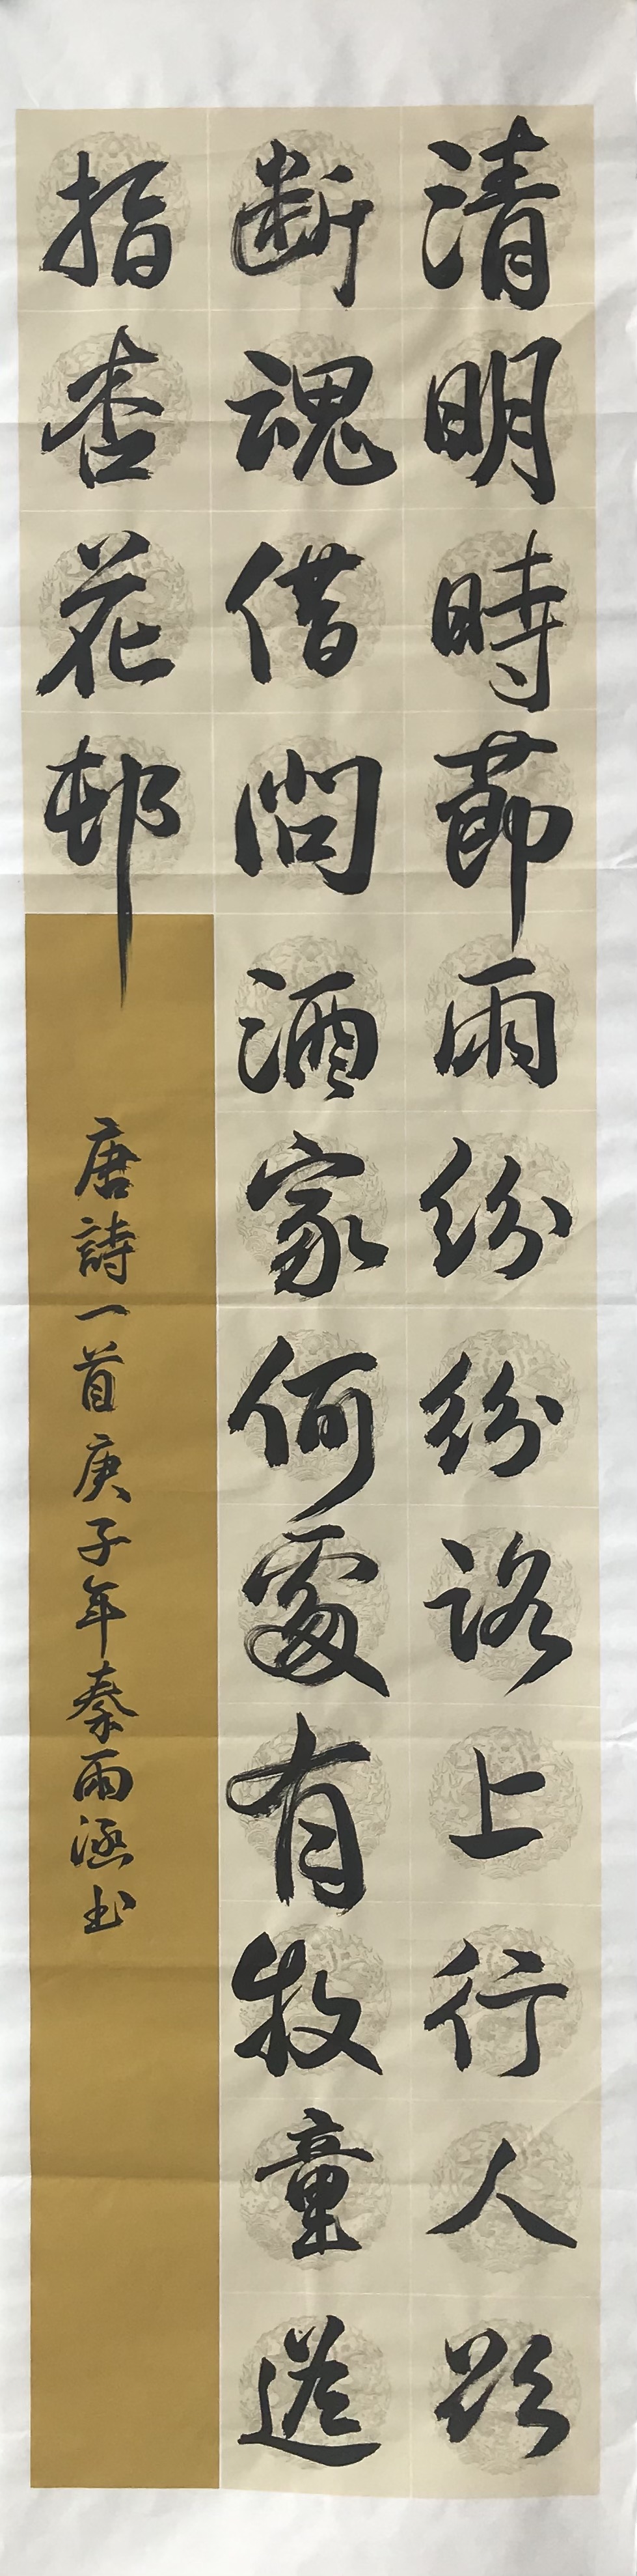 清明時節雨紛紛路上行人欲
斷魂借問酒家何處有牧童遥
指杏花邨
唐詩一首庚子年秦雨涵书